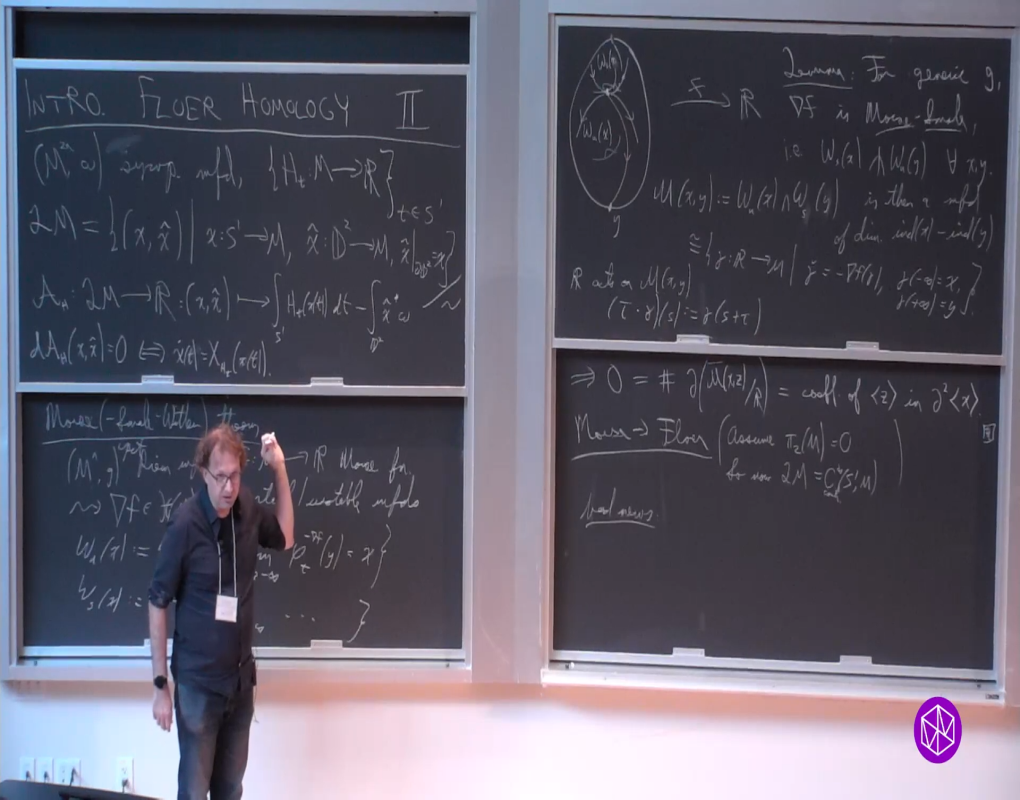 INTRO. FLOER HOMOLOGY II
(M²ⁿ, ω) symp. mfd, {Hₜ: M → ℝ}_{t ∈ S¹}
𝓛M = {(x, x̂) | x: S¹ → M, x̂: 𝔻² → M, x̂|_{∂𝔻²} = x}/~
A_H: 𝓛M → ℝ: (x, x̂) ↦ ∫_{S¹} Hₜ(x(t)) dt − ∫_{𝔻²} x̂*ω
dA_H(x, x̂) = 0 ⟺ ẋ(t) = X_{Hₜ}(x(t)).
Morse (-Smale-Witten)
(Mⁿ, g) cpct → ℝ Morse fn.
⇝ ∇f ∈ unstable mfds
Wᵤ(x) := φₜ^{-∇f}(y) = x}
Wₛ(x) := ... }
Wₛ(y)
Wᵤ(x)
y
f → ℝ
Lemma: For generic g,
∇f is Morse-Smale,
i.e. Wₛ(x) ⋔ Wᵤ(y) ∀ x, y.
M(x,y) := Wᵤ(x) ∩ Wₛ(y) is then a mfd
of dim. ind(x) − ind(y)
≅ {γ: ℝ → M | γ̇ = −∇f(γ), γ(−∞) = x, γ(+∞) = y}.
ℝ acts on M(x,y)
(τ · γ)(s) := γ(s+τ)
⇒ 0 = # ∂(M̄(x,z)/ℝ) = coeff. of ⟨z⟩ in ∂²⟨x⟩.
Morse → Floer (Assume π₂(M) = 0
so now 𝓛M = C^∞_{cont}(S¹, M))
bad news: